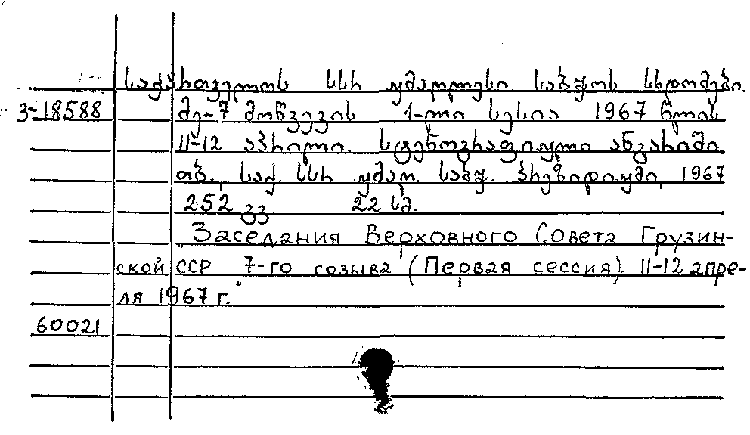 საქართველოს სსრ უმაღლესი საბჭოს სხდომები
3-18588 მე-7 მოწვევის 1-ლი სესია 1967 წლის
11-12 აპრილი. სტენოგრაფიული ანგარიში
თბ. საქ. სსრ უმაღ. საბჭ. პრეზიდიუმი, 1967
252 გვ 22 სმ.
Заседания Верховного Совета Грузин-
ской ССР 7-го созыва (Первая сессия) 11-12 апре-
ля 1967 г.
60021